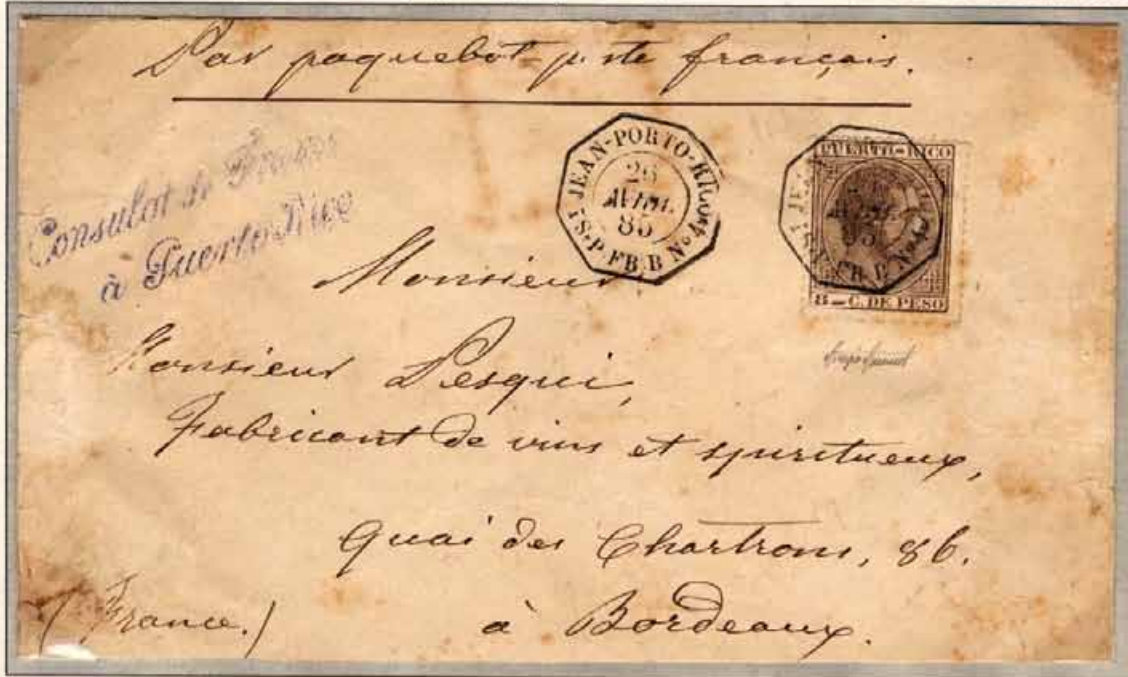 Par paquebot-p.ste français.
Consulat de France
à Puerto Rico
St JEAN-PORTO-RICO
26
AVRIL
85
PAQ. FR. B Nº 4
PUERTO-RICO
8 - C. DE PESO
Monsieur
Monsieur Lesqui,
Fabricant de vins et spiritueux,
Quai des Chartrons, 86.
à Bordeaux.
(France.)